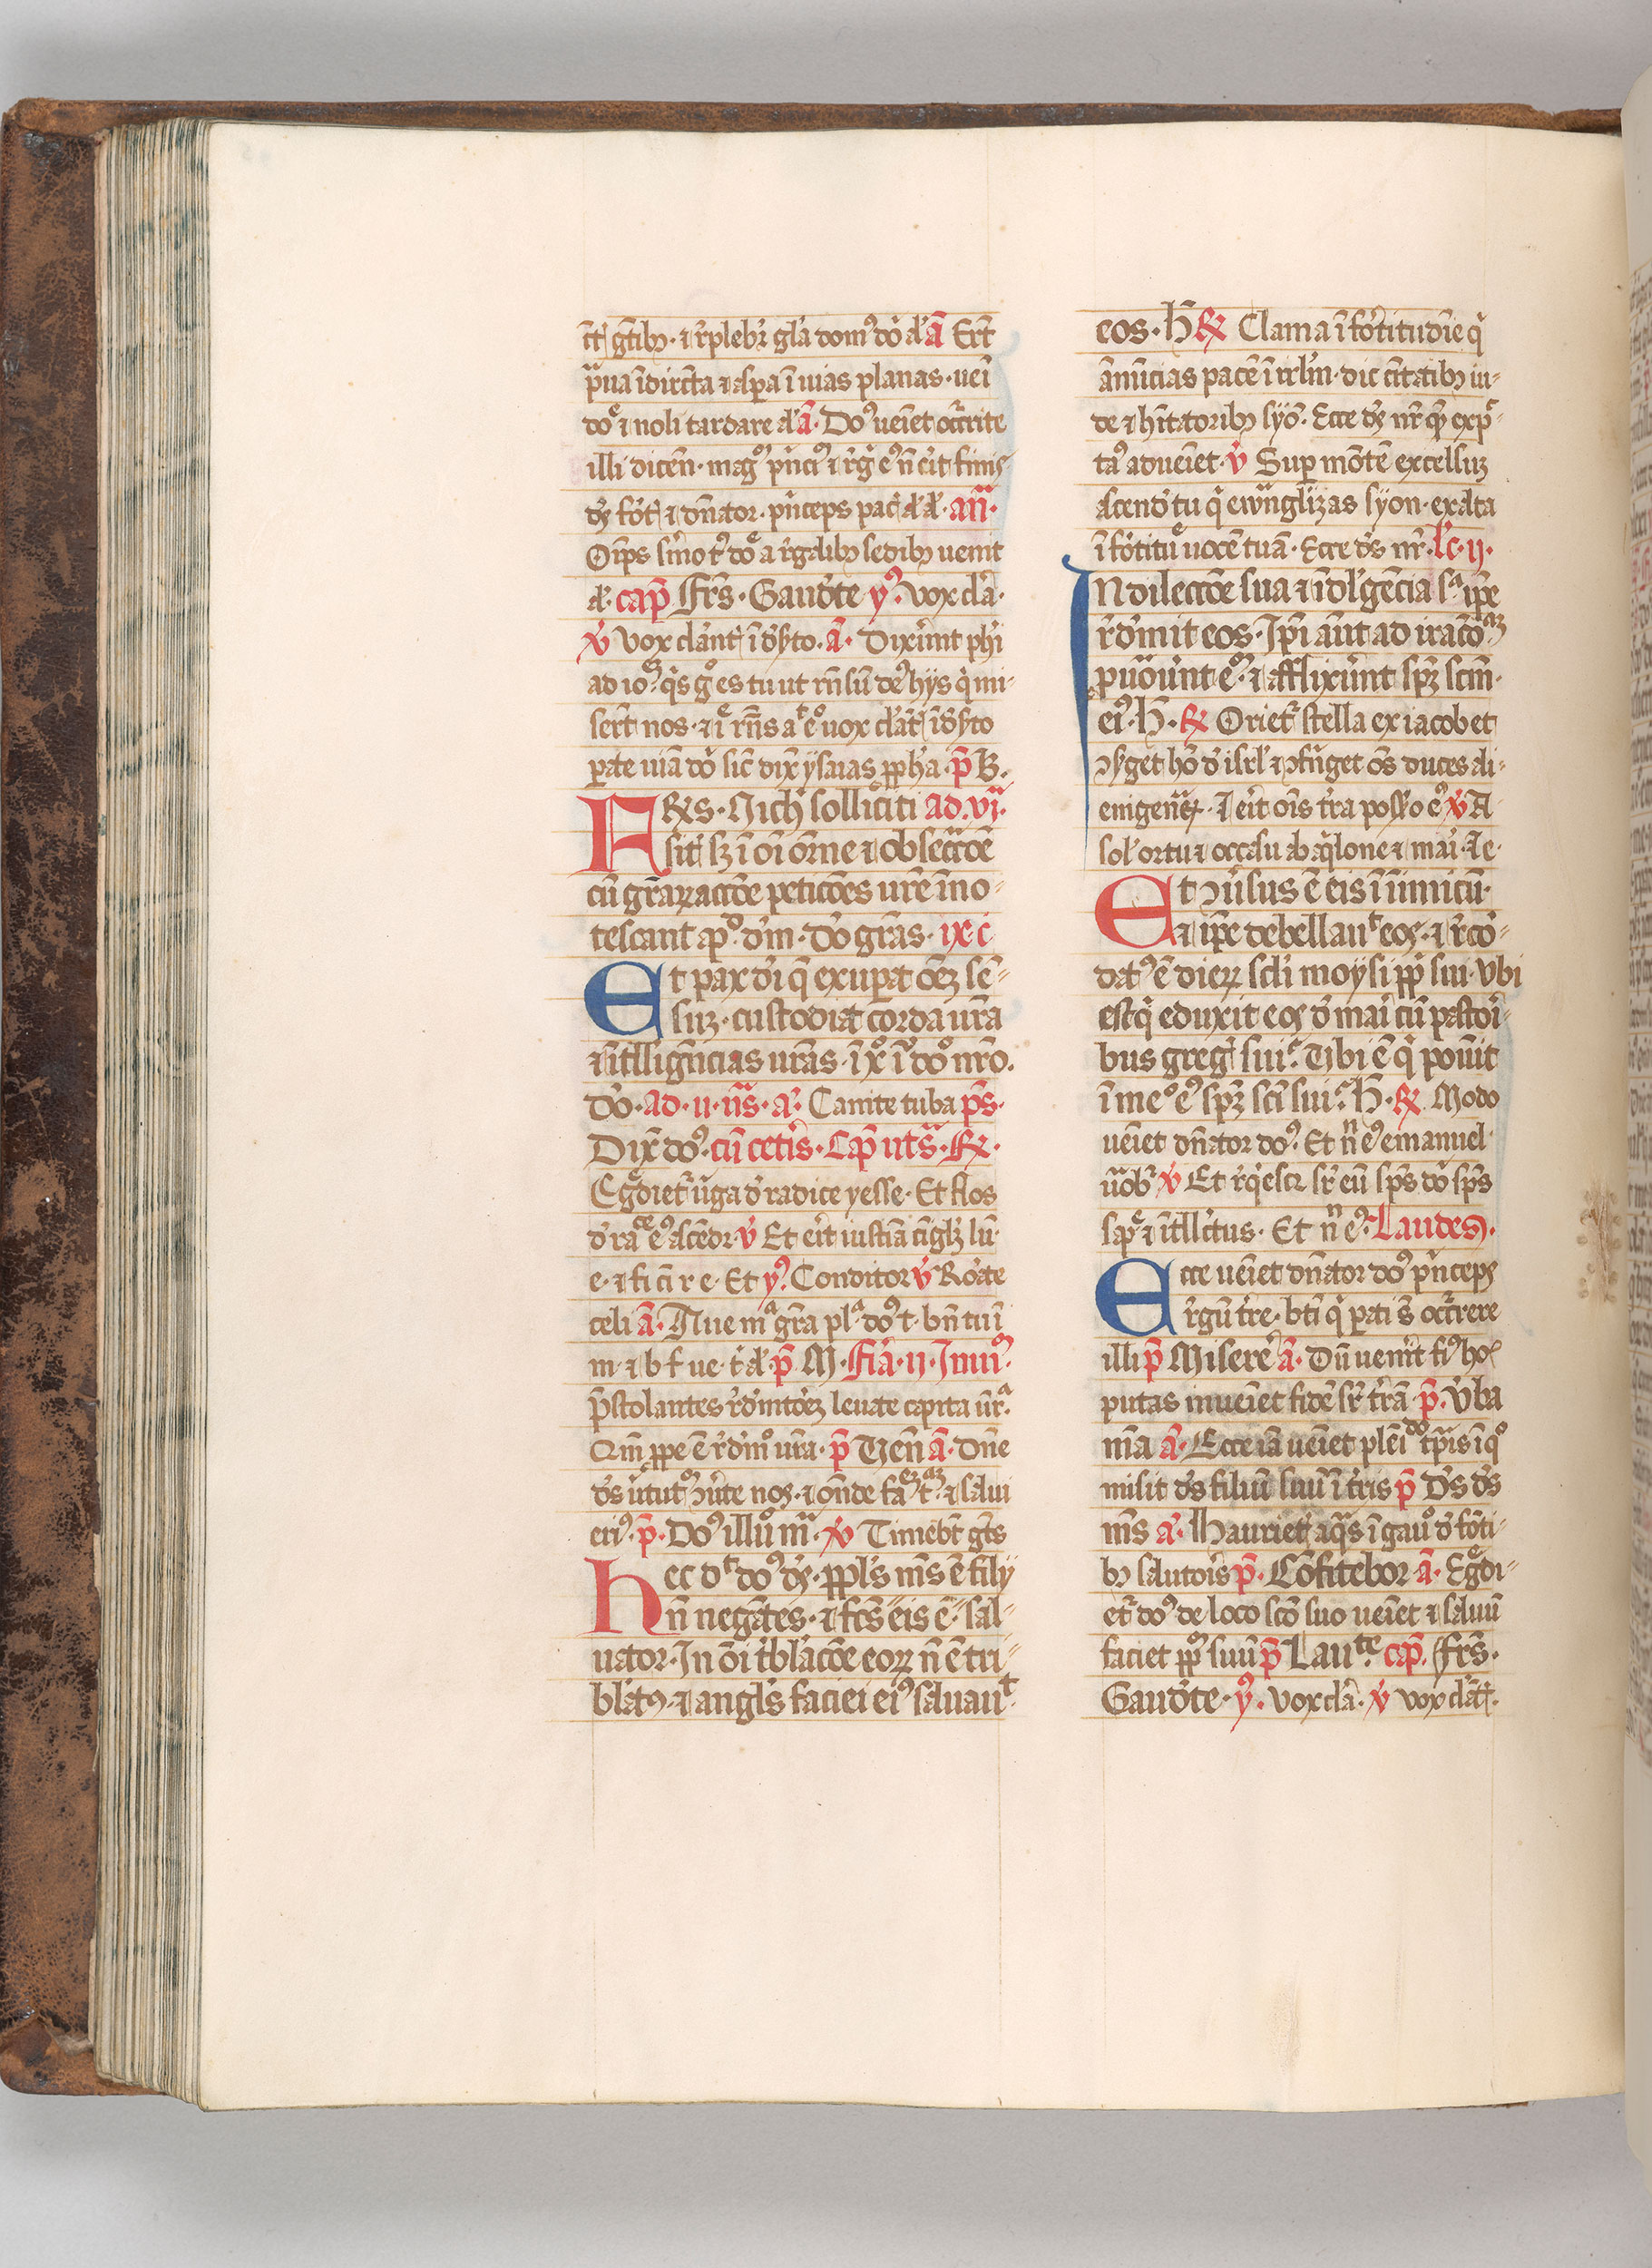 c̄t gētibꝫ · ⁊ r̄plebr̄ gl̄a dom᷒ dō al̄ a Er̄t
p̄ua ī dirc̄ta ⁊ asp̄a ī uias planas · uēi
dō ⁊ noli tardare al̄ a · Do᷒ uēiet oc̄crite
illi dicēn · mag᷒ p̄nci᷒ ⁊ r̄g e᷒ n̄ er̄it finis
pr̄inceps pac̄
Oīps sīmo t᷒ dō a r̄galibꝫ sedibꝫ uenit
al̄ · cap̄ Fr̄s · Gaud̄te y᷒ · vox cla̅ ·
v̄ Vox cla̅nt ī ds̄to · a · Dixer̄nt ph̄i
ad io · q̄s g̊ es tu ut rn̄ sū de᷒ hÿs q̄ mi
sert̄ nos · ⁊ ī rn̄s a e᷒ uox cla̅t ī ds̄to
pate uiā dō sic̄ dix̄ ysaias ꝓph̄a · p̄ B ·
FRes · Nich̄ solliciti ad · vi ·
sitꝭ sꝫ ī oī or̄ne ⁊ obsec̄racōe
cū gr̄aꝝ accōe peticōes vr̄e īno
tescant ap᷒ dm̄ · Dō gr̄as · ix · c
Et pax dī q̄ exupat oēꝫ sē
suꝫ · custodiat corda ur̄a
⁊ ītlligēncias ur̄as · ī xo ī̄ do nr̄o ·
Dō · ad · ii · ns̄ · a · Canite tuba p̄s ·
Dix̄ do᷒ · cū cetīs · Cap̄ uts̄ · R̷ ·
Egdiet̄ ūga d̄ radice yesse · Et flos
d̄ race e᷒ ascēdꝫ v̄ Et er̄it iustiā cīglꝫ lū
e · ⁊ fi ci r e · Et y᷒ · Conditor v̄ Rorate
celi a · Aue ma gr̄a pla do᷒ t · bn̄ tu ī
m · ⁊ b f ue · t̄ al̄ · p̄ M · Fīa · ii · Inui᷒ ·
p̄stolantes r̄dm̄torēꝫ leuate capita ūra ·
Qm̄ ꝓpe ē r̄dm̄o ur̄a · p̄ Veī a · Dn̄e
dȳs ūtut᷒ ꝯūte nos · ⁊ on̄de fa t · ⁊ salui
eri᷒ · p̄ · Do᷒ illū ma · v̄ Timebt̄ gn̄ts
hec dt do᷒ dȳ · ppls̄ ms̄ ē filÿ
n̄ negātes · ⁊ fcs̄ eis ē · sal
uator · In oī t̄blacōe eoꝝ n̄ ē tri
blat᷒ · ⁊ angls̄ faciei ei᷒ saluaut ·
eos · H̄ R̷ Clama ī fortitudīe q̄
ānūcias pacē ī irlm̄ · dic cītatibꝫ iu
de ⁊ hītatoribꝫ syō · Ecce dȳ nr̄ qē exp̄
ta᷒ aduēiet · v̄ Sup mōtē excelsuꝫ
ascend̄ tu q̄ ewāglizas syon · exalta
ī fortitū uocē tuā · Ecce ds̄ nr̄ · lc̄ · ii ·
In dileccōe sua ⁊ īdlgēcia sa ip̄e
r̄dm̄it eos · Ip̄i aūt ad iracō
puouer̄nt e᷒ · ⁊ afflixer̄unt sp̄ꝫ scm̄ ·
ei᷒ · H̄ · R̷ Oriet̄ stella ex iacob et
ꝯsg̓et hō d̄ isrl̄ ⁊ ꝯfr̄iget oēs duces ali
enigenaꝝ · ⁊ er̄it oīs tr̄a possō e᷒ v̄ A
sol ortu ⁊ occasu ab aq̄lone ⁊ mai · ⁊ e ·
Et ꝯūsus ē eis ī inimicū ·
⁊ ip̄e debellauit eos · ⁊ r̄cor̄
dat᷒ ē dieꝝ scl̄i moÿsi pp̄li sui · Vbi
est q̄ eduxit eos d̄ mai cū pastor̄i
bus gregꝭ sui · Vbi ē q̄ posuit
ī me᷒ e᷒ sp̄ꝫ sci sui · H̄ · R̷ Modo
ueīet dn̄ator do᷒ · Et n̄ e᷒ emanuel
uobꝭ v̄ Et r̄q̄escꝫ sr̄ eū sps̄ dō sps̄
sap̄ ⁊ ītllctus · Et n̄ e᷒ · Laudes ·
Ecce uēiet dn̄ator do᷒ p̄inceps
r̄gū tr̄e · bti q̄ pati s̄ occrrere
illi p̄ Misere a · Dn̄ uenit̄ fi᷒ hoꝭ
putas inueīet fidē sr̄ tr̄ā · p̄ · Vba
ma a · Ecce iā uēiet plēido tp̄is ī qo
misit ds̄ filiū suū ī tr̄is p̄ Ds̄ ds̄
ms̄ a · Hauriet̄ aq̄s ī gaū d̄ fōti
bꝫ saluatoris p̄ · Cōfitebor · a · Egdi
et̄ do᷒ de loco scō suo ueīet ⁊ saluū
faciet pp̄ suū p̄ Laute · cap̄ · Fr̄s ·
Gaud̄te · y᷒ · vox cla̅ · v̄ vox cla̅t ·